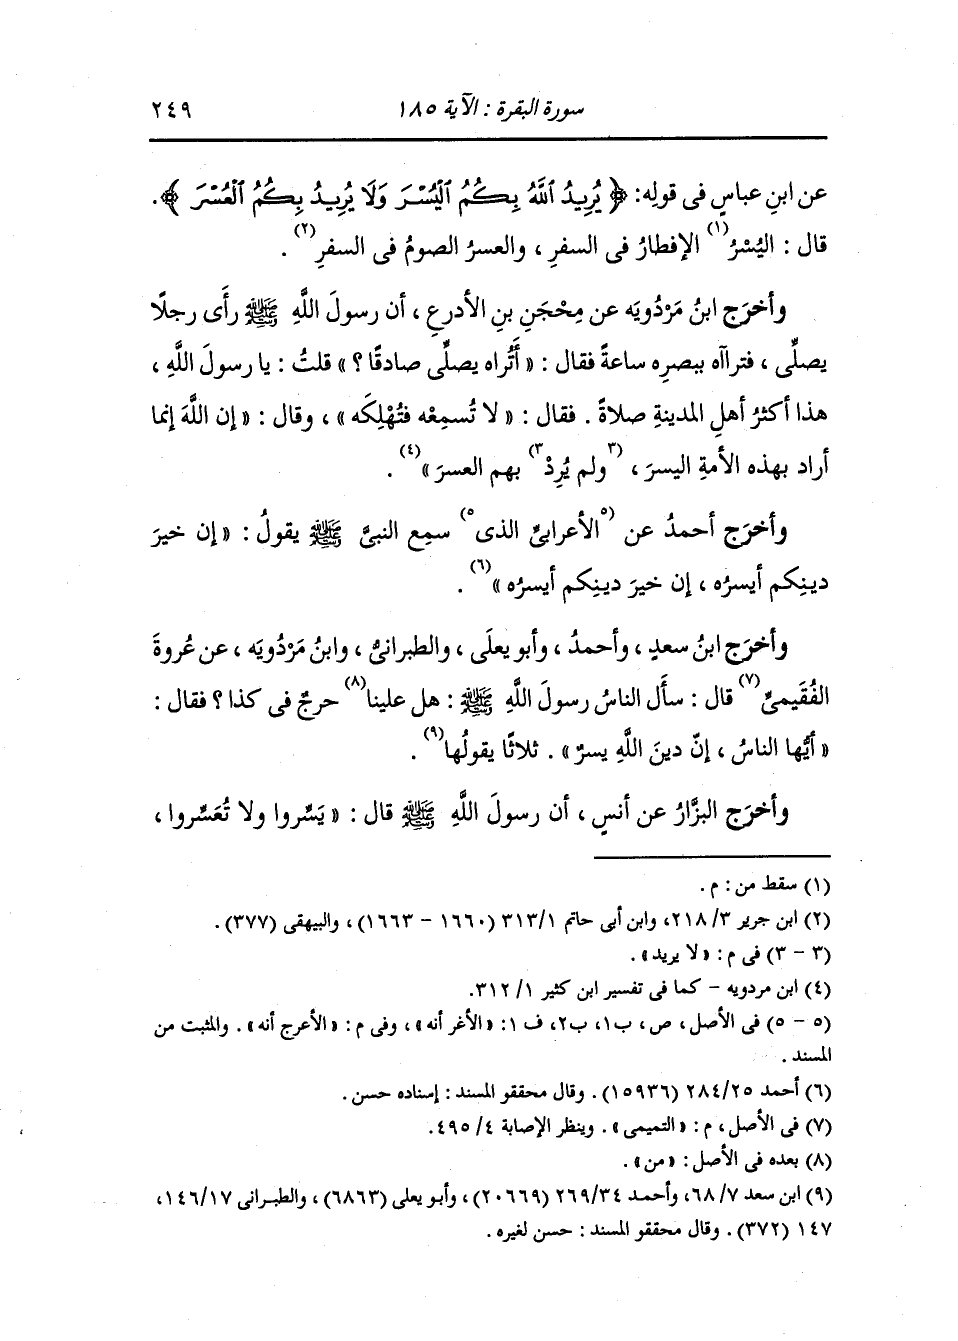 سورة البقرة : الآية ١٨٥ ٢٤٩
عن ابنِ عباسٍ فى قولِه: ﴿ يُرِيدُ ٱللَّهُ بِكُمُ ٱلْيُسْرَ وَلَا يُرِيدُ بِكُمُ ٱلْعُسْرَ ﴾ .
قال : اليُسْرُ(١) الإفطارُ فى السفرِ ، والعسرُ الصومُ فى السفرِ(٢) .
وأخرَج ابنُ مَرْدُويَه عن مِحْجَنِ بنِ الأدرعِ ، أن رسولَ اللَّهِ ﷺ رأَى رجلًا
يصلِّى ، فتراآه ببصرِه ساعةً فقال : « أَتُراه يصلِّى صادقًا ؟ » قلتُ : يا رسولَ اللَّهِ ،
هذا أكثرُ أهلِ المدينةِ صلاةً . فقال : « لا تُسمِعْه فتُهْلِكَه » ، وقال : « إن اللَّهَ إنما
أراد بهذه الأمةِ اليسرَ ، (٣ولم يُرِدْ٣) بهم العسرَ »(٤) .
وأخرَج أحمدُ عن (٥الأعرابىِّ الذى٥) سمِع النبىَّ ﷺ يقولُ : « إن خيرَ
دينِكم أيسرُه ، إن خيرَ دينِكم أيسرُه »(٦) .
وأخرَج ابنُ سعدٍ ، وأحمدُ ، وأبو يعلَى ، والطبرانىُّ ، وابنُ مَرْدُويَه ، عن عُروةَ
الفُقَيمىِّ(٧) قال : سأَل الناسُ رسولَ اللَّهِ ﷺ : هل علينا(٨) حرجٌ فى كذا ؟ فقال :
« أيُّها الناسُ ، إنّ دينَ اللَّهِ يسرٌ » . ثلاثًا يقولُها(٩) .
وأخرَج البزَّارُ عن أنسٍ ، أن رسولَ اللَّهِ ﷺ قال : « يَسِّروا ولا تُعَسِّروا ،
(١) سقط من : م .
(٢) ابن جرير ٣/ ٢١٨، وابن أبى حاتم ٣١٣/١ (١٦٦٠ - ١٦٦٣) ، والبيهقى (٣٧٧) .
(٣ - ٣) فى م : « لا يريد » .
(٤) ابن مردويه - كما فى تفسير ابن كثير ١/ ٣١٢.
(٥ - ٥) فى الأصل ، ص ، ب١، ب٢، ف ١: « الأغر أنه » ، وفى م : « الأعرج أنه » . والمثبت من
المسند .
(٦) أحمد ٢٨٤/٢٥ (١٥٩٣٦) . وقال محققو المسند : إسناده حسن .
(٧) فى الأصل ، م : « التميمى » . وينظر الإصابة ٤/ ٤٩٥.
(٨) بعده فى الأصل : « من » .
(٩) ابن سعد ٧/ ٦٨، وأحمد ٢٦٩/٣٤ (٢٠٦٦٩) ، وأبو يعلى (٦٨٦٣) ، والطبرانى ١٤٦/١٧،
١٤٧ (٣٧٢) . وقال محققو المسند : حسن لغيره .